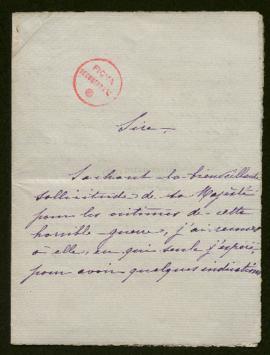 Sire,
Sachant la bienveillante
sollicitude de sa Majesté
pour les victimes de cette
horrible guerre, j'ai recours
à elle, en qui seule j'espère,
pour avoir quelques indications